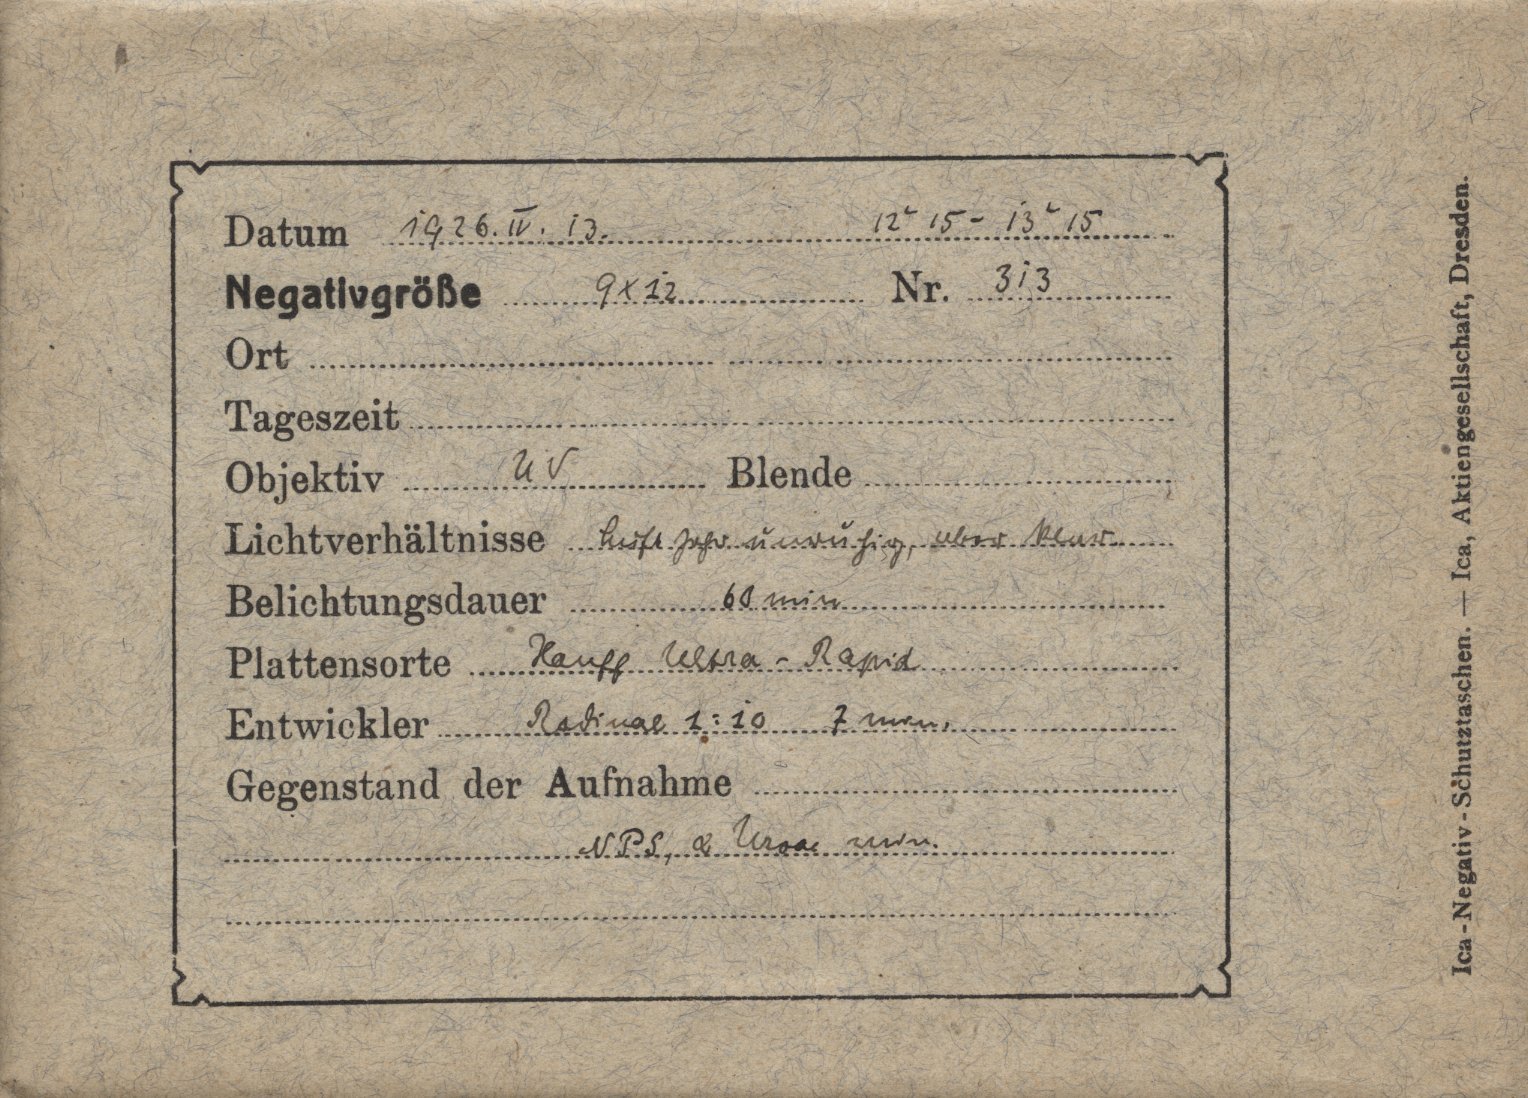 Datum 1926. IV. 13. 12ʰ 15 - 13ʰ 15
Negativgröße 9x12 Nr. 313
Ort
Tageszeit
Objektiv UV Blende
Lichtverhältnisse Luft sehr unruhig, aber klar
Belichtungsdauer 60 min
Plattensorte Hauff Ultra - Rapid
Entwickler Rodinal 1:10 7 min.
Gegenstand der Aufnahme
NPS, α Ursae min.
Ica-Negativ-Schutztaschen. — Ica, Aktiengesellschaft, Dresden.